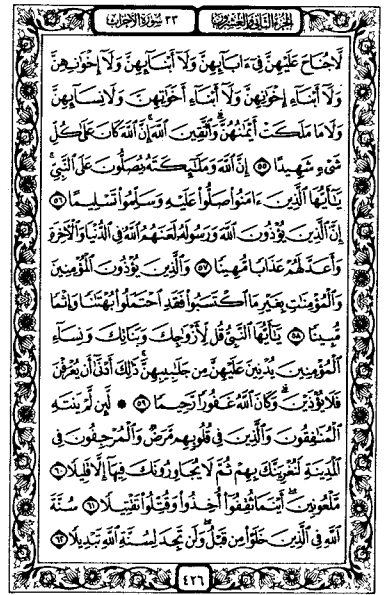 الجزء الثاني والعشرون ٣٣ سورة الأحزاب
لَّا جُنَاحَ عَلَيْهِنَّ فِىٓ ءَابَآئِهِنَّ وَلَآ أَبْنَآئِهِنَّ وَلَآ إِخْوَٰنِهِنَّ
وَلَآ أَبْنَآءِ إِخْوَٰنِهِنَّ وَلَآ أَبْنَآءِ أَخَوَٰتِهِنَّ وَلَا نِسَآئِهِنَّ
وَلَا مَا مَلَكَتْ أَيْمَٰنُهُنَّۗ وَٱتَّقِينَ ٱللَّهَۚ إِنَّ ٱللَّهَ كَانَ عَلَىٰ كُلِّ
شَىْءٍ شَهِيدًا ٥٥ إِنَّ ٱللَّهَ وَمَلَٰٓئِكَتَهُۥ يُصَلُّونَ عَلَى ٱلنَّبِىِّۚ
يَٰٓأَيُّهَا ٱلَّذِينَ ءَامَنُوا۟ صَلُّوا۟ عَلَيْهِ وَسَلِّمُوا۟ تَسْلِيمًا ٥٦
إِنَّ ٱلَّذِينَ يُؤْذُونَ ٱللَّهَ وَرَسُولَهُۥ لَعَنَهُمُ ٱللَّهُ فِى ٱلدُّنْيَا وَٱلْءَاخِرَةِ
وَأَعَدَّ لَهُمْ عَذَابًا مُّهِينًا ٥٧ وَٱلَّذِينَ يُؤْذُونَ ٱلْمُؤْمِنِينَ
وَٱلْمُؤْمِنَٰتِ بِغَيْرِ مَا ٱكْتَسَبُوا۟ فَقَدِ ٱحْتَمَلُوا۟ بُهْتَٰنًا وَإِثْمًا
مُّبِينًا ٥٨ يَٰٓأَيُّهَا ٱلنَّبِىُّ قُل لِّأَزْوَٰجِكَ وَبَنَاتِكَ وَنِسَآءِ
ٱلْمُؤْمِنِينَ يُدْنِينَ عَلَيْهِنَّ مِن جَلَٰبِيبِهِنَّۚ ذَٰلِكَ أَدْنَىٰٓ أَن يُعْرَفْنَ
فَلَا يُؤْذَيْنَۗ وَكَانَ ٱللَّهُ غَفُورًا رَّحِيمًا ٥٩ ۞ لَّئِن لَّمْ يَنتَهِ
ٱلْمُنَٰفِقُونَ وَٱلَّذِينَ فِى قُلُوبِهِم مَّرَضٌ وَٱلْمُرْجِفُونَ فِى
ٱلْمَدِينَةِ لَنُغْرِيَنَّكَ بِهِمْ ثُمَّ لَا يُجَاوِرُونَكَ فِيهَآ إِلَّا قَلِيلًا ٦٠
مَّلْعُونِينَۖ أَيْنَمَا ثُقِفُوٓا۟ أُخِذُوا۟ وَقُتِّلُوا۟ تَقْتِيلًا ٦١ سُنَّةَ
ٱللَّهِ فِى ٱلَّذِينَ خَلَوْا۟ مِن قَبْلُۖ وَلَن تَجِدَ لِسُنَّةِ ٱللَّهِ تَبْدِيلًا ٦٢
٤٢٦